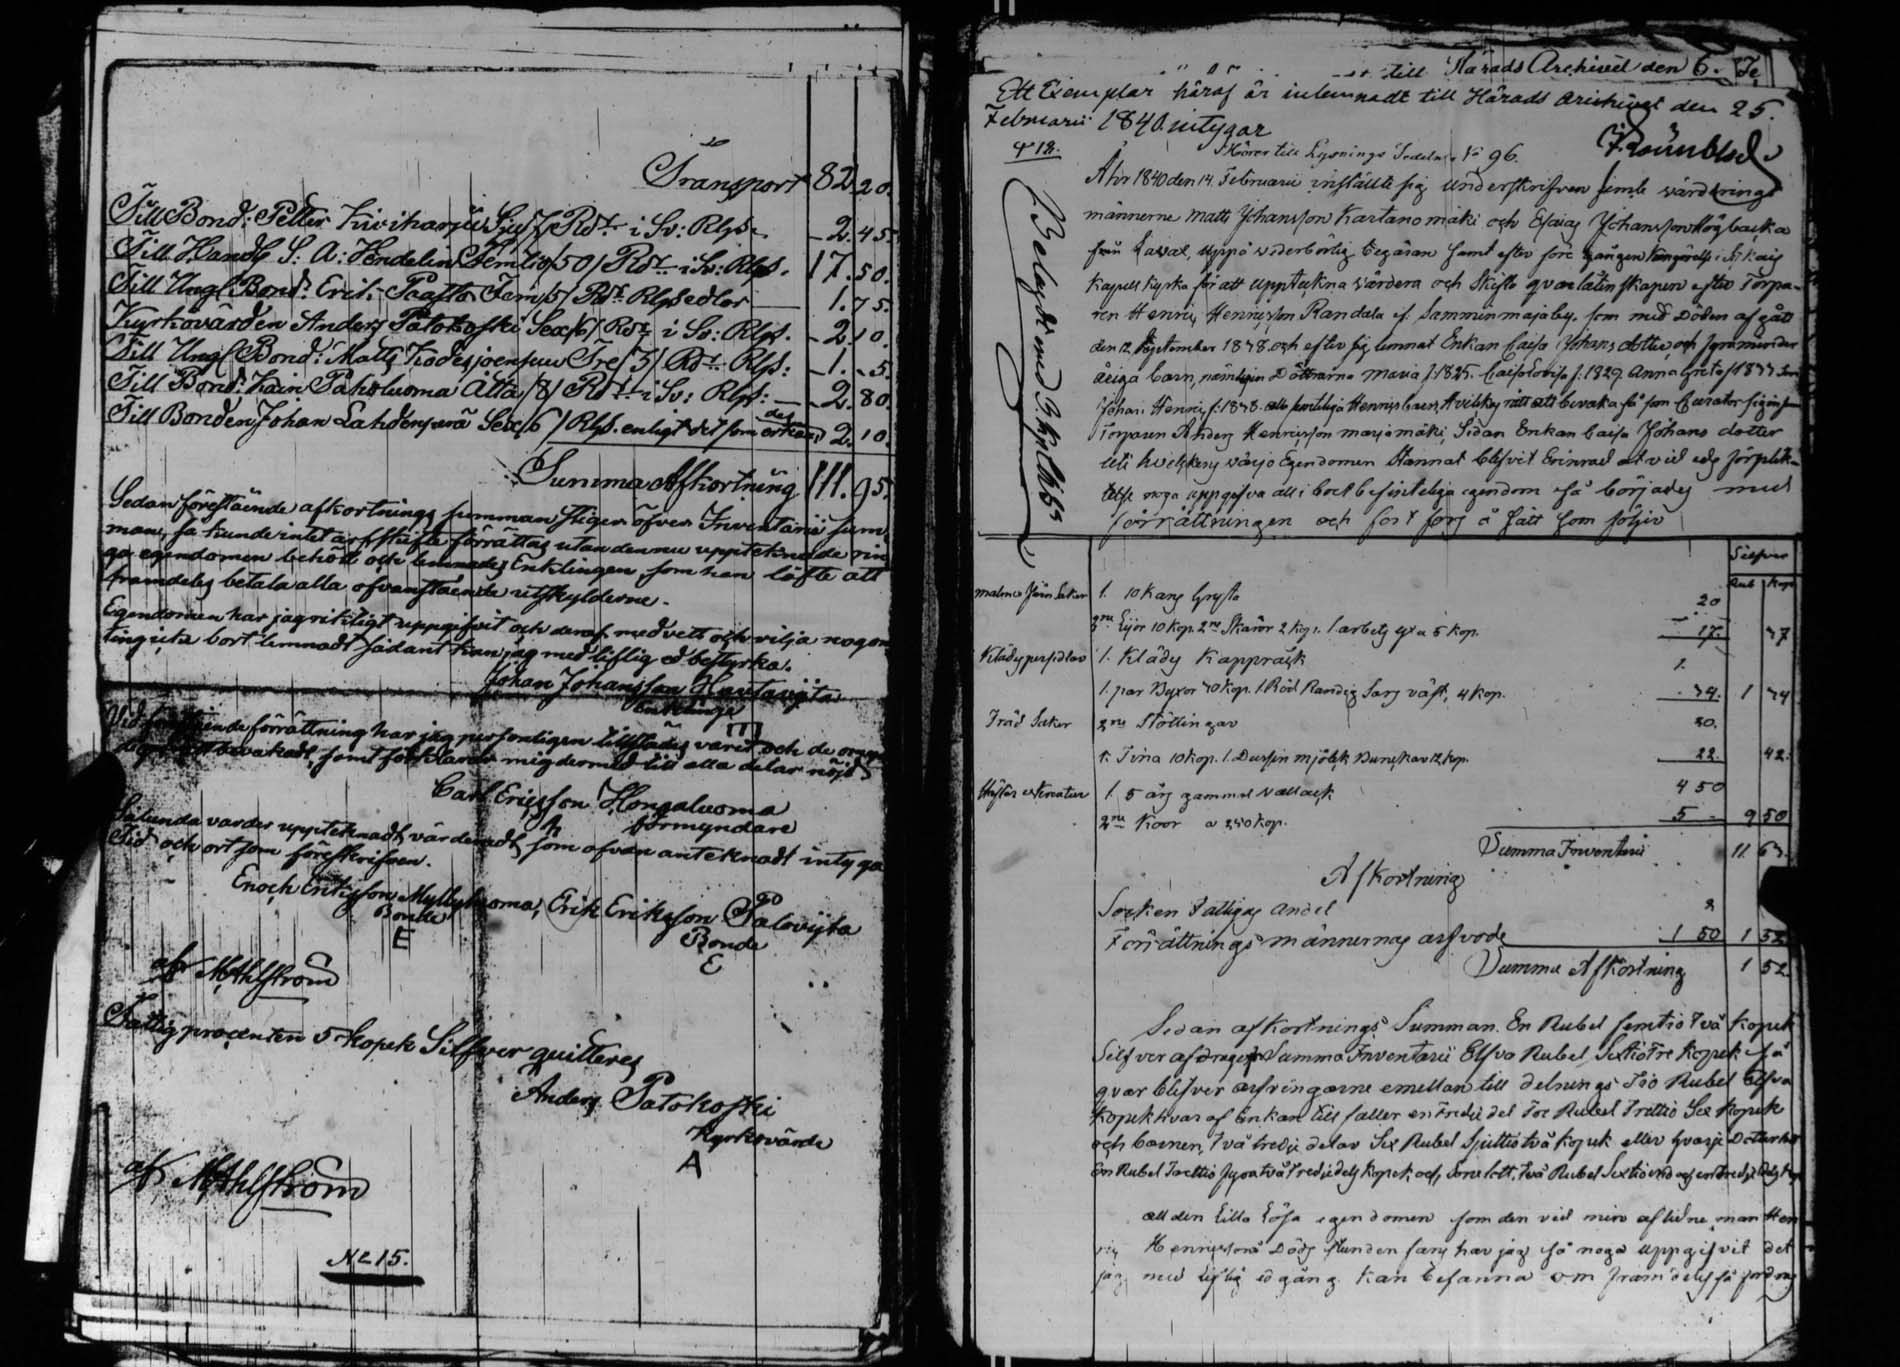 Transport 82 20.
Till Bond: Petter Kiviharju Sju /7/ Rdr i Sv: Rgs. 2. 45.
Till Handl S: A: Hendelin Femtio /50/ Rdr i Sv: Rgs. 17. 50.
Till Ungl Bond: Erik Paasto Fem /5/ Rdr Rgsedlar 1. 75.
Kyrkovärden Anders Patokoski Sex /6/ Rdr i Sv: Rgs. 2. 10.
Till Ungl Bond: Matts Tre /3/ Rdr Rgs: 1. 5.
Till Bond: Paholuoma Åtta /8/ Rdr i Sv: Rgs: 2. 80.
Till Bonden Johan Lahdenperä Sex /6/ Rgs. enligt det som 2. 10.
Summa Afkortning 111. 95.
Sedan förestående afkortnings summan stiger öfver Inventarii sum
man, så kunde intet arfskifte förrättas utan den nu upptecknade rin
ga egendomen behölt och lemnades Enklingen, som han löfte att
framdeles betala alla ofvanstående utskylderne.
Egendomen har jag riktigt uppgifvit och deraf med vett och vilja någon
ting icke bort lemnadt sådant kan jag med liflig ed bestyrka.
Johan Johansson Hautaviita
Enklinge
Vid förrättning har jag personligen tillstädes varit och de
bevakadt, samt förklarar mig dermed till alla delar nöjd
Carl Ericsson Hongaluoma
förmyndare
Sålunda varder upptecknadt, värderadt som ofvan antecknadt intyga
Tid och ort som föreskrifven.
Enoch Eriksson Myllyluoma, Erik Eriksson Paloviita
Bonde Bonde
E E
af M. Ahlström
Fattigprocenten 5 kopek Silfver quitteres
Anders Patokoski
Kyrkovärde
A
af M. Ahlström
No 15.
till Härads Archivet den 6. Fe
Ett Exemplar häraf är inlemnadt till Härads Archivet den 25.
Februarii 1840. intygar
Hörer till Lysnings Sedeln No 96.
År 1840 den 14 Februarii inställte sig underskrifven jemte värderings
männerne Matts Johansson Kartanomäki och Esaias Johansson Högbacka
från uppå vederbörlig begäran samt efter före gången kungörelse i
Kapell Kyrka för att uppteckna värdera och skifta qvarlåtenskapen efter Torpa-
ren Henric Henricsson Randala af Samminmaja by, som med döden afgått
den 12 September 1838. och efter sig lemnat Enkan Caisa Johans dotter och
åriga barn, nämligen Döttrarna Maria f. 1825. Caisa Lovisa f. 1829. Anna Greta f 1833
Johan Henric f: 1838. rätt att bevaka så som Curator
Torparen Anders Henricsson Marjamäki, Sedan Enkan Caisa Johans dotter
uti hvilkens värjo Egendomen stannat blifvit Erinrad at vid eds förplik-
telse noga uppgifva all i boet befintelige egendom så börjades med
förrättningen och fort fors å sätt som följer
Silfver
Rub Kop
Malm o Järn Saker 1. 10 Kans Gryta 20
2ne Lijor 10 kop. 2ne Skäror 2 kop. 1. arbets yx a 5 kop. 17. 37
Klädes persedlar 1. Klädes Kappråck 1.
1. par Byxor 30 kop. 1. Röd Randig Sars väst, 4 kop. 34. 1 34
Träd Saker 2ne Stöttingar 20.
1. Tina 10 kop. 1. Dussin mjölk Bunckar 12 kop. 22. 42.
Hästar o Kreatur 1. 5 års gammal vallack 4 50
2ne Koor a 250 kop. 5 - 9 50
Summa Inventarii 11. 63.
Afkortning
Socken Fattigas andel 2
Förrättnings männernas arfvode 1 50 1 52
Summa Afkortning 1 52
Sedan afkortnings Summan En Rubel femtio två kopek
Silfver afdrages Summa Inventarii Elfva Rubel Sextio Tre kopek så
qvar blifver arfvingarne emellan till delnings Tio Rubel Elfva
Kopek hvar af Enkan till faller en Tredje del Tre Rubel Trettio Sex kopek
och barnen, två tredje delar Sex Rubel Sjuttio två kopek eller hvarje Dotter
En Rubel Trettio fyra två Tredje dels kopek och Sone lott. Två Rubel Sextio
all den lilla lösa egendomen som den vid min aflidne man Hen
ric Henricssons Döds stunden fans har jag så noga uppgifvit det
jag med liflig ed gång kan besanna om framdeles så fordras